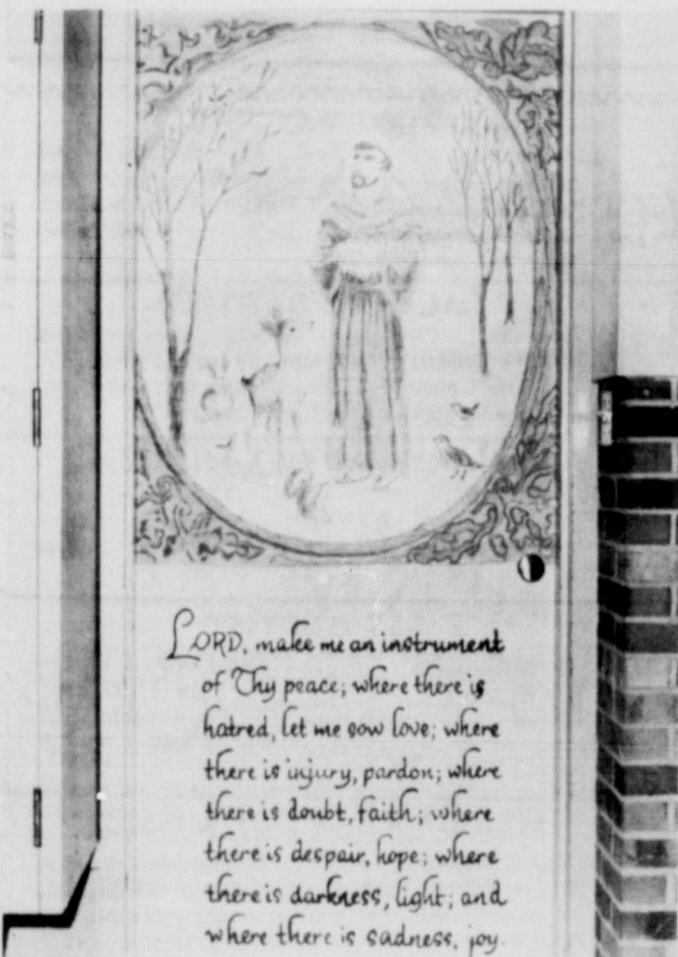 LORD, make me an instrument
of Thy peace; where there is
hatred, let me sow love; where
there is injury, pardon; where
there is doubt, faith; where
there is despair, hope; where
there is darkness, light; and
where there is sadness, joy.